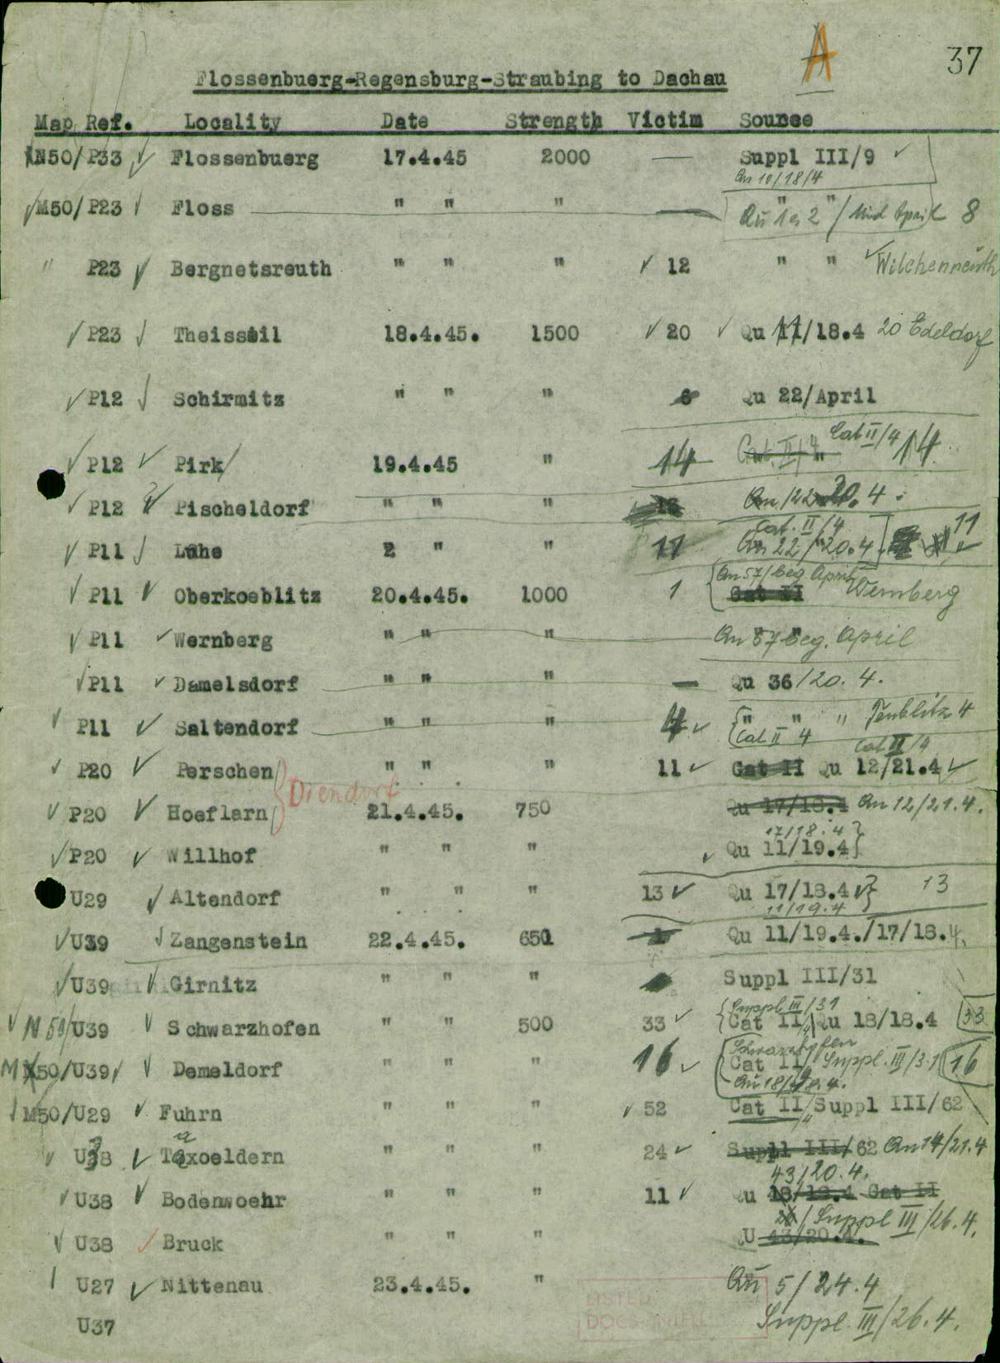 A
37
Flossenbuerg-Regensburg-Straubing to Dachau
Map Ref. Locality Date Strength Victim Source
N50/P33 Flossenbuerg 17.4.45 2000 — Suppl III/9
Qu 10/18/4
M50/P23 Floss " " " — " "
Qu 1 a 2 / Mid April 8
" P23 Bergnetsreuth " " " 12 " " Wilchenreuth
P23 Theisseil 18.4.45. 1500 20 Qu 11/18.4 20 Edeldorf
P12 Schirmitz " " " 6 Qu 22/April
P12 Pirk 19.4.45 " 14 Cat II/4 14
P12 Pischeldorf " " " Qu 12 20.4.
Cat. II/4 11
P11 Luhe " " 11 Qu 22/20.4
Qu 57/beg April
P11 Oberkoeblitz 20.4.45. 1000 1 Cat II Wernberg
P11 Wernberg " " " Qu 57 beg. April
P11 Damelsdorf " " " — Qu 36/20.4.
P11 Saltendorf " " " 4 " " " 4
Cat II 4
Cat II/4
P20 Perschen " " " 11 Cat II Qu 12/21.4
Diendorf
P20 Hoeflarn 21.4.45. 750 Qu 17/18.4 Qu 12/21.4.
17/18.4
P20 Willhof " " " Qu 11/19.4
U29 Altendorf " " " 13 Qu 17/18.4 13
11/19.4
U39 Zangenstein 22.4.45. 650 Qu 11/19.4./17/18.4.
U39 Girnitz " " " Suppl III/31
Suppl III/31
N50/U39 Schwarzhofen " " 500 33 Cat II Qu 18/18.4 33
Schwarzhofen
M50/U39 Demeldorf " " " 16 Cat II Suppl. III/31 16
Qu 18/18.4.
M50/U29 Fuhrn " " " 52 Cat II/Suppl III/62
a
U38 Taxoeldern " " " 24 Suppl III/62 Qu 14/21.4
43/20.4.
U38 Bodenwoehr " " " 11 Qu 18/18.4 Cat II
/Suppl III/26.4.
U38 Bruck " " " QU 43/20.4.
U27 Nittenau 23.4.45. " Qu 5/24.4
U37 Suppl. III/26.4.
LISTED